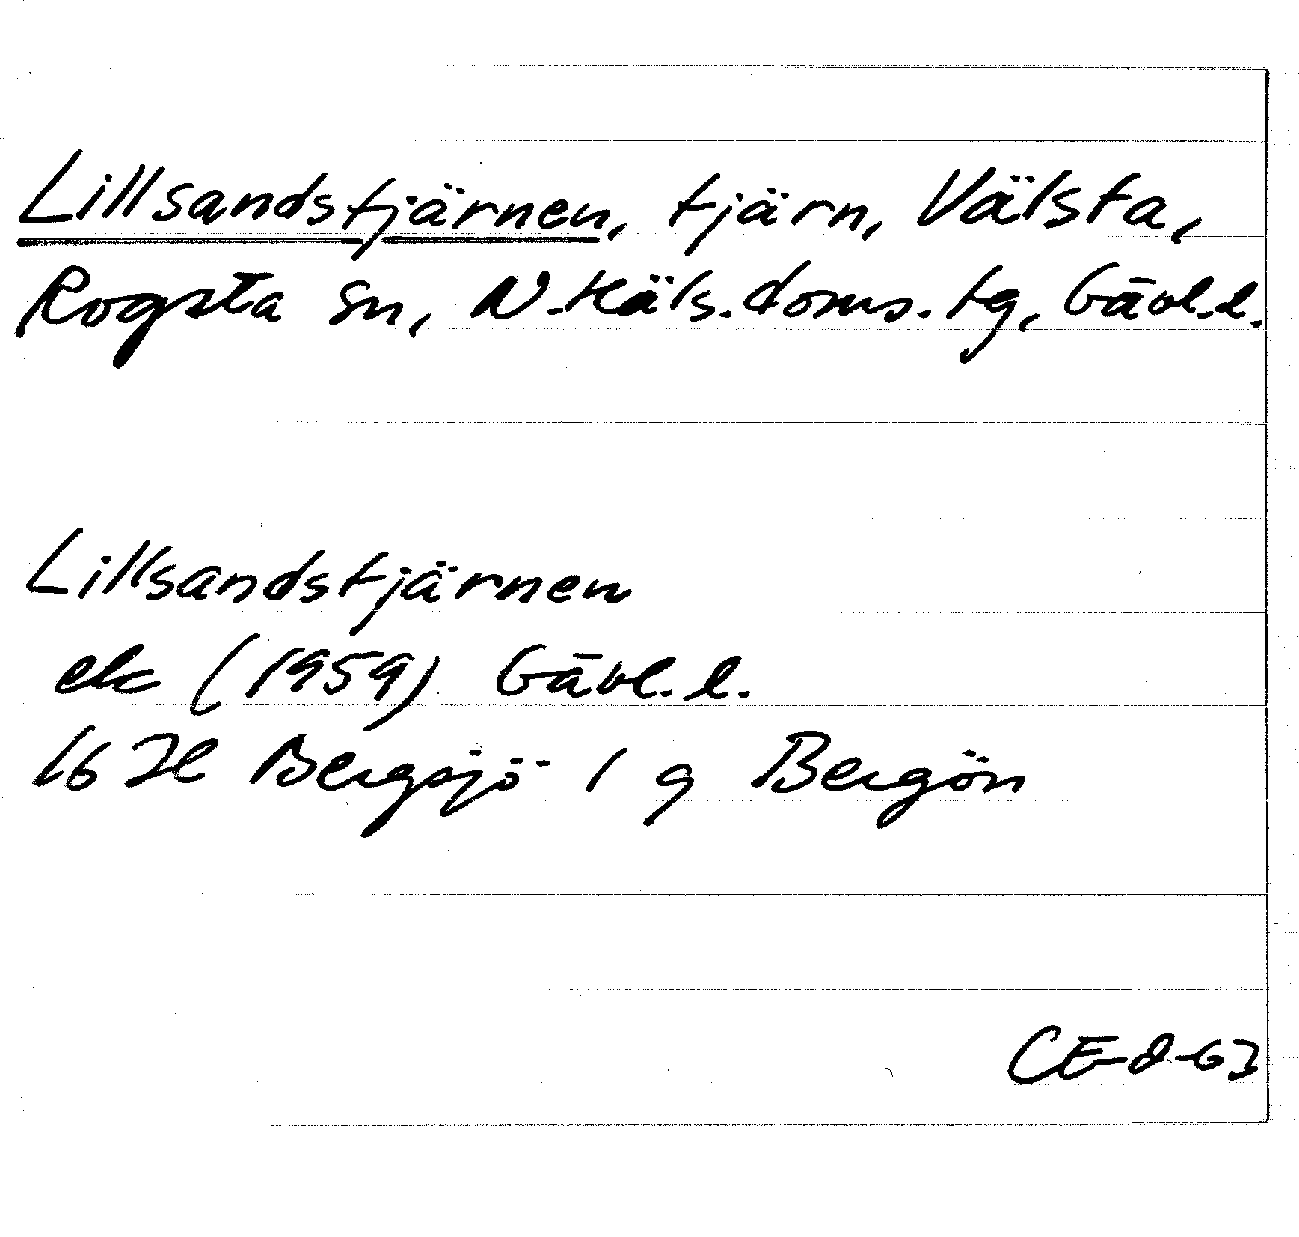 Lillsandstjärnen, tjärn, Välsta,
Rogsta sn, N.Häls.doms.tg, Gävl.l.
Lillsandstjärnen
ek (1959) Gävl.l.
16 H Bergsjö 1 g Bergön
CE-8-63